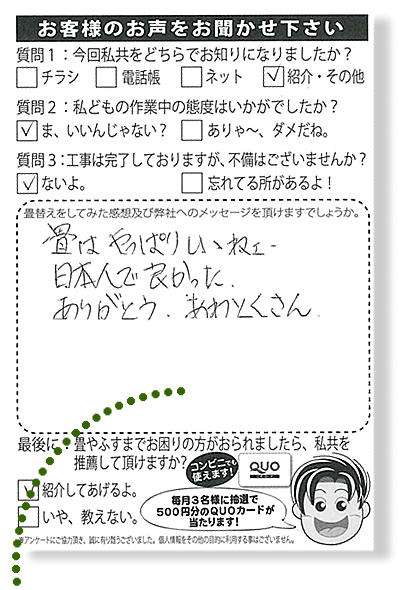 お客様のお声をお聞かせ下さい
質問1:今回私共をどちらでお知りになりましたか?
チラシ 電話帳 ネット ✓紹介・その他
質問2:私どもの作業中の態度はいかがでしたか?
✓ま、いいんじゃない? ありゃ〜、ダメだね。
質問3:工事は完了しておりますが、不備はございませんか?
✓ないよ。 忘れてる所があるよ!
畳替えをしてみた感想及び弊社へのメッセージを頂けますでしょうか。
畳は やっぱりいいねェー
日本人で良かった.
ありがとう. あわとくさん.
最後に:畳やふすまでお困りの方がおられましたら、私共を
推薦して頂けますか?
コンビニでも
使えます!
QUO
✓紹介してあげるよ。
いや、教えない。
毎月3名様に抽選で
500円分のQUOカードが
当たります!
アンケートにご協力頂き、誠に有り難うございました。個人情報をその他の目的に利用する事はございません。